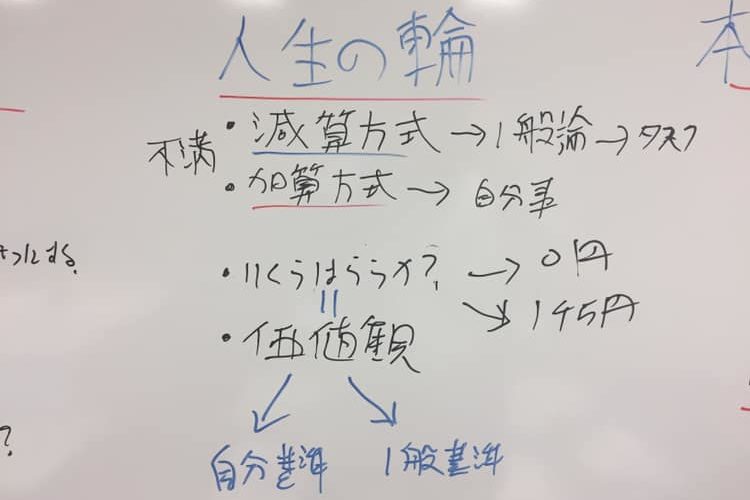 人生の輪
本
不満
・減算方式→1般論→タスク
・加算方式→自分事
・いくらはらうか?→0円
↘145円
||
・価値観
自分基準 1般基準
にする。
?